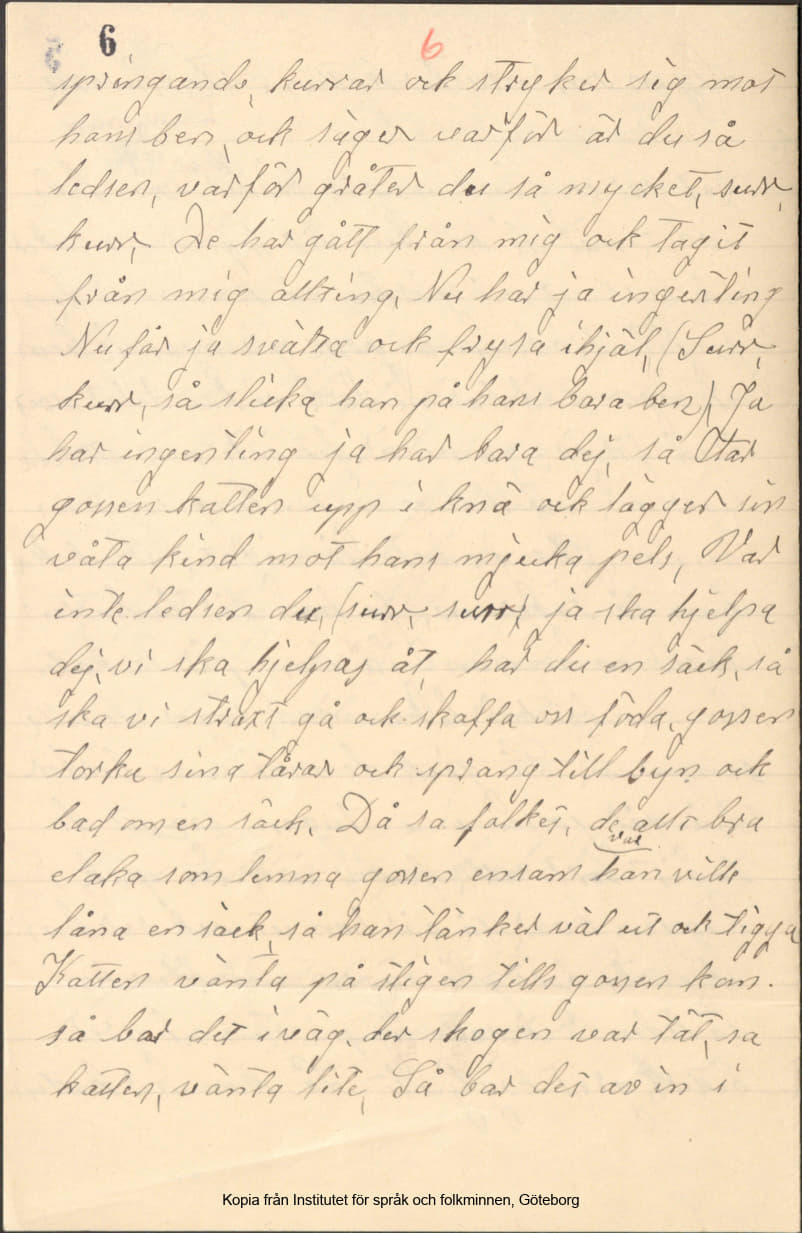 6
6
springande, kurrar ock stryker sig mot
hans ben, ock säger varför är du så
ledsen, varför gråter du så mycket, surr,
kurr, De har gått från mig ock tagit
från mig allting, Nu har ja ingenting
Nu får ja svälta ock frysa ihjäl, (Surr,
kurr, så slicka han på hans bara ben), Ja
har ingenting ja har bara dej, så tar
gossen katten upp i knä ock lägger sin
våta kind mot hans mjuka pels, Var
inte ledsen du, (surr, surr) ja ska hjelpa
dej, vi ska hjelpas åt, har du en säck, så
ska vi straxt gå ock skaffa oss föda, gossen
torka sina tårar ock sprang till byn ock
bad om en säck. Då sa folket, de var allt bra
elaka som lemna gossen ensam han ville
låna en säck, så han tänker väl ut ock tigga
Katten vänta på stigen tills gossen kom.
så bar det iväg, der skogen var tät, sa
katten, vänta lite, Så bar det av in i
Kopia från Institutet för språk och folkminnen, Göteborg